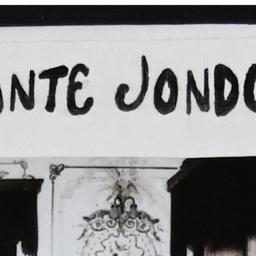 ANTE JONDO